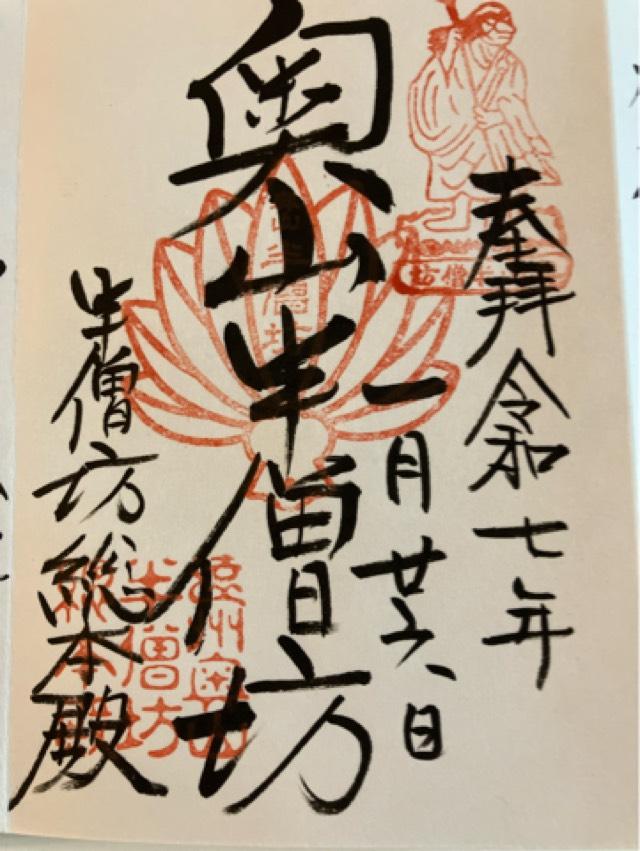 奉拝 令和七年
一月廿六日
奥山半僧坊
半僧坊総本殿
半僧坊
遠州奥山
半僧坊
総本殿